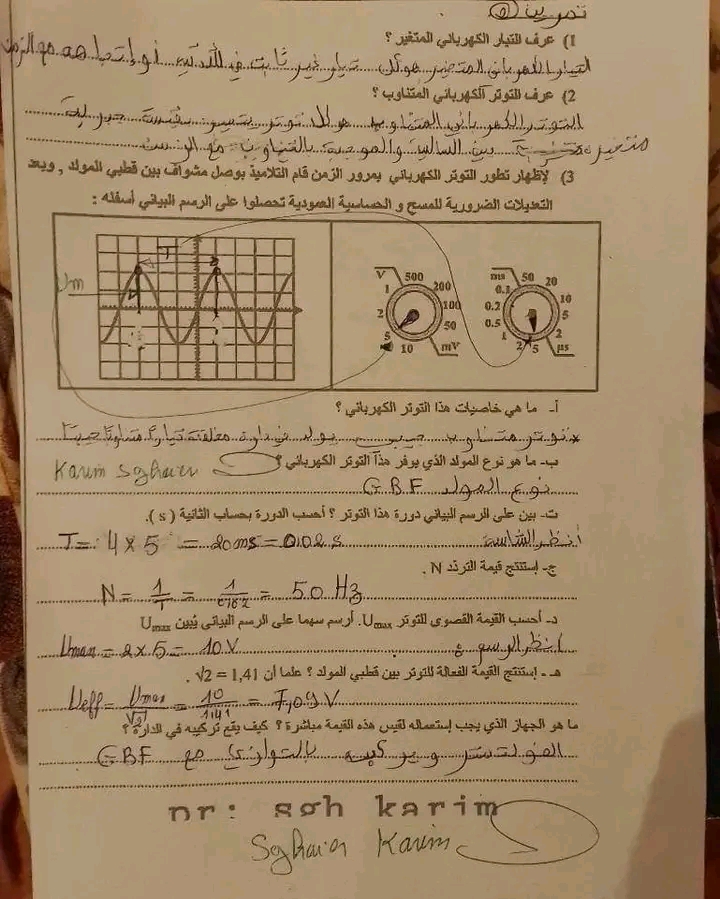 تمرين
1) عرف التيار الكهربائي المتغير ؟
التيار الكهربائي المتغير هو كل تيار غير ثابت في الشدة أو إتجاهه مع الزمن
2) عرف للتوتر الكهربائي المتناوب ؟
التوتر الكهربائي المتناوب هو كل توتر يتميز بقيمة جبرية
متغيرة بين السالبة والموجبة بالتناوب مع الزمن
3) لإظهار تطور التوتر الكهربائي بمرور الزمن قام التلاميذ بوصل مشواف بين قطبي المولد , وبعد
التعديلات الضرورية للمسح و الحساسية العمودية تحصلوا على الرسم البياني أسفله :
T
Um
V 500 200 100 50 mV 10 5 2 1
ms 50 20 10 5 2 µs 5 2 1 0.5 0.2 0.1
أ- ما هي خاصيات هذا التوتر الكهربائي ؟
توتر متناوب جيبي يولد في دارة مغلقة تيارا متناوبا جيبيا
ب- ما هو نوع المولد الذي يوفر هذا التوتر الكهربائي ؟
Karim Sghaier
نوع المولد GBF
ت- بين على الرسم البياني دورة هذا التوتر ؟ أحسب الدورة بحساب الثانية (s).
أنظر الشاشة T= 4 X 5 = 20ms = 0,02 s
ج- إستنتج قيمة التردد N.
N = 1/T = = 50 Hz
د- أحسب القيمة القصوى للتوتر Umax. أرسم سهما على الرسم البياني يُبين Umax
أنظر الرسم Umax = 2 x 5 = 10 V
هـ- إستنتج القيمة الفعالة للتوتر بين قطبي المولد ؟ علما أن √2 = 1,41 .
Ueff = Umax/√2 = 10/1,41 = 7,09 V
ما هو الجهاز الذي يجب إستعماله لقيس هذه القيمة مباشرة ؟ كيف يقع تركيبه في الدارة ؟
الفولتمتر ويركب بالتوازي مع GBF
pr: sgh karim
Sghaier Karim